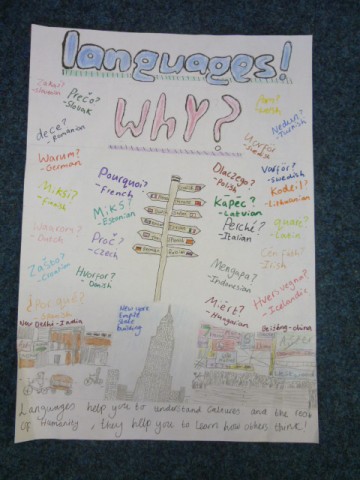 languages!
WHY?
Zakaj?
-Slovenian
Prečo?
-Slovak
dece?
-Romanian
Warum?
-German
Miksi?
-Finish
Waarom?
-Dutch
Zašto?
-Croatian
¿Por qué?
-Spanish
Pourquoi?
-French
MiKS?
-Estonian
Proč?
-Czech
Hvorfor?
-Danish
Dlaczego?
-Polish
Kāpēc?
-Latvian
Perché?
-Italian
Mengapa?
-Indonesian
Miért?
-Hungarian
Varför?
-Swedish
Kodėl?
-Lithuanian
quare?
-Latin
-Irish
Hvers vegna?
-Icelandic
Neden?
-Turkish
New Delhi-India
New york
Empire
State
building
Beijing-china
Languages help you to understand cultures and the rest
of Humanity, they help you to learn how others think!